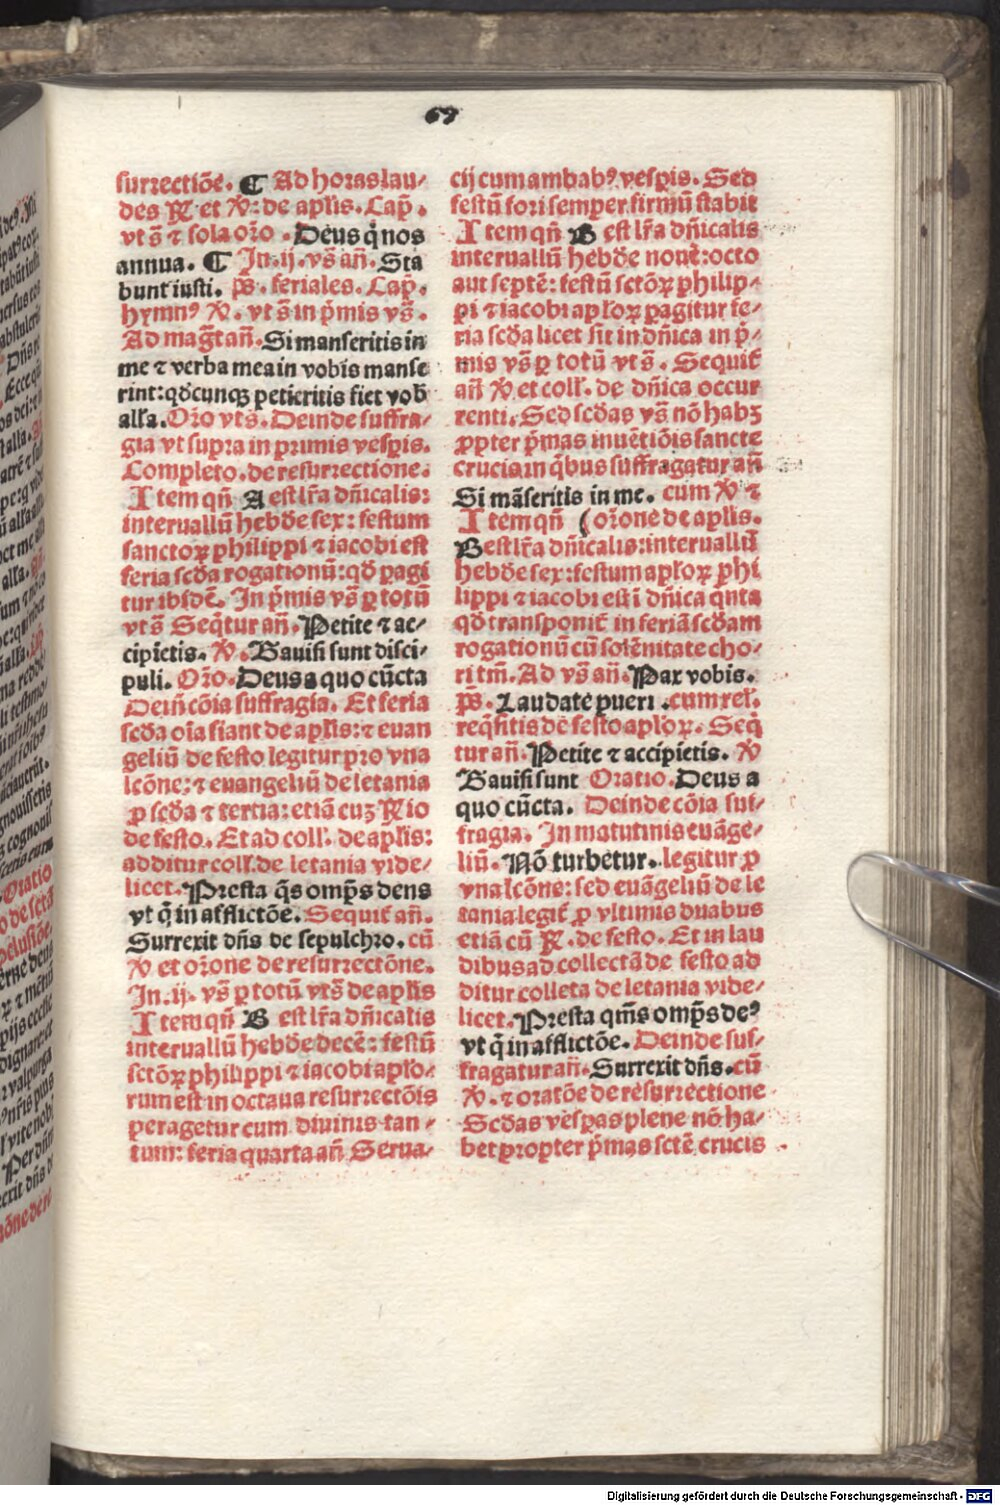 69
surrectiōe. ¶ Ad horas lau⸗
des ℟ et ℣: de aplīs. Cap̄.
vt s̄ ⁊ sola oro̅ . Deus q̄ nos
annua. ¶ In .ij. vs̄ an̄. Sta
bunt iusti. p̄s. feriales. Cap̄.
hymnꝰ ℣. vt s̄ in p̄mis vs̄.
Ad mag̅t an̄. Si manseritis in
me ⁊ verba mea in vobis manse
rint: qd̄cunqꝫ petieritis fiet vob̄
alla. Oro̅ vt s̄. Deinde suffra⸗
gia vt supra in primis vesp̄is.
Completo. de resurrectione.
Item qn̄ A est lr̄a dn̄icalis:
interuallū hebd̄e sex: festum
sanctoꝝ philippi ⁊ iacobi est
feria scd̄a rogationū: qd̄ pagi
tur ibidē. In p̄mis vs̄ ꝑ totū
vt s̄ Seq̄tur an̄. Petite ⁊ ac⸗
cipietis. ℣. Gauisi sunt disci⸗
puli. Oro̅. Deus a quo cūcta
Dein̄ cōia suffragia. Et feria
scd̄a oīa fiant de aplīs: ⁊ euan
geliū de festo legitur pro vna
lcōne: ⁊ euangeliū de letania
ꝑ scd̄a ⁊ tertia: etiā cuꝫ ℟io
de festo. Et ad coll. de aplīs:
additur coll. de letania vide⸗
licet. Presta q̄s omp̄s dens
vt q̄ in afflictōe. Sequit̄ an̄.
Surrexit dn̄s de sepulchro. cū
℣ et orōne de resurrectōne.
In .ij. vs̄ ꝑ totū vt s̄ de aplīs
Item qn̄ B est lr̄a dn̄icalis
interuallū hebd̄e decē: festū
sctōꝝ philippi ⁊ iacobi aplo⸗
rum est in octaua resurrectōis
peragetur cum diuinis tan⸗
tum: feria quarta an̄ Serua⸗
cij cum ambabꝰ vesp̄is. Sed
festū fori semper firmū stabit
Item qn̄ B est lr̄a dn̄icalis
interuallū hebd̄e noue: octo
aut septē: festū sctōꝝ philip⸗
pi ⁊ iacobi aploꝝ pagitur fe⸗
ria scd̄a licet sit in dn̄ica in p̄⸗
mis vs̄ ꝑ totū vt s̄. Sequit̄
an̄ ℣ et coll. de dn̄ica occur
renti. Sed scd̄as vs̄ nō habꝫ
ꝓpter p̄mas inuētiōis sancte
crucis in q̄bus suffragatur an̄
Si māseritis in me. cum ℣ ⁊
Item qn̄ (orōne de aplīs.
B est lr̄a dn̄icalis: interuallū
hebd̄e sex: festum aploꝝ phi
lippi ⁊ iacobi est i dn̄ica qnta
qd̄ transponit̄ in feriā scd̄am
rogationū cū solēnitate cho⸗
ri tm̄. Ad vs̄ an̄. Pax vobis.
p̄s. Laudate pueri . cum rel.
req̄sitis de festo aploꝝ. Seq̄
tur an̄. Petite ⁊ accipietis. ℣
Gauisi sunt Oratio. Deus a
quo cūcta. Deinde cōia suf⸗
fragia. In matutinis euāge⸗
liū. Nō turbetur. legitur ꝑ
vna lcōne: sed euāgeliū de le
tania legit̄ ꝑ vltimis duabus
etiā cū ℟. de festo. Et in lau
dibus ad collectā de festo ad
ditur colleta de letania vide⸗
licet. Presta qm̄s omp̄s deꝰ
vt q̄ in afflictōe. Deinde suf⸗
fragatur an̄. Surrexit dn̄s. cū
℣. ⁊ oratōe de resurrectione
Scd̄as vesp̄as plene nō ha⸗
bet propter p̄mas sctē crucis
Digitalisierung gefördert durch die Deutsche Forschungsgemeinschaft - DFG